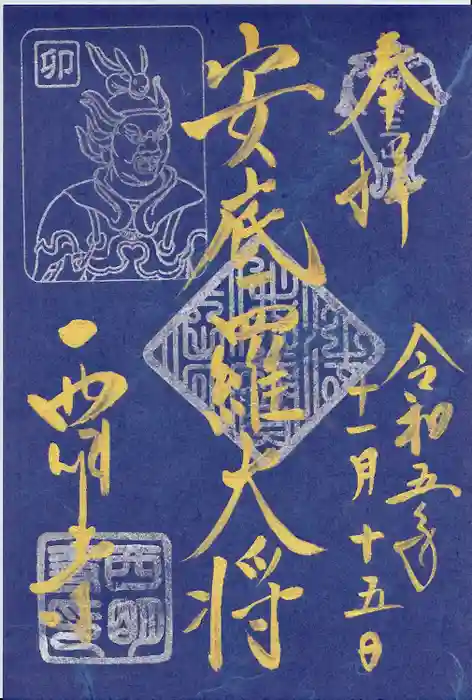 奉拝
令和五年
十一月十五日
安底羅大将
卯
西明寺